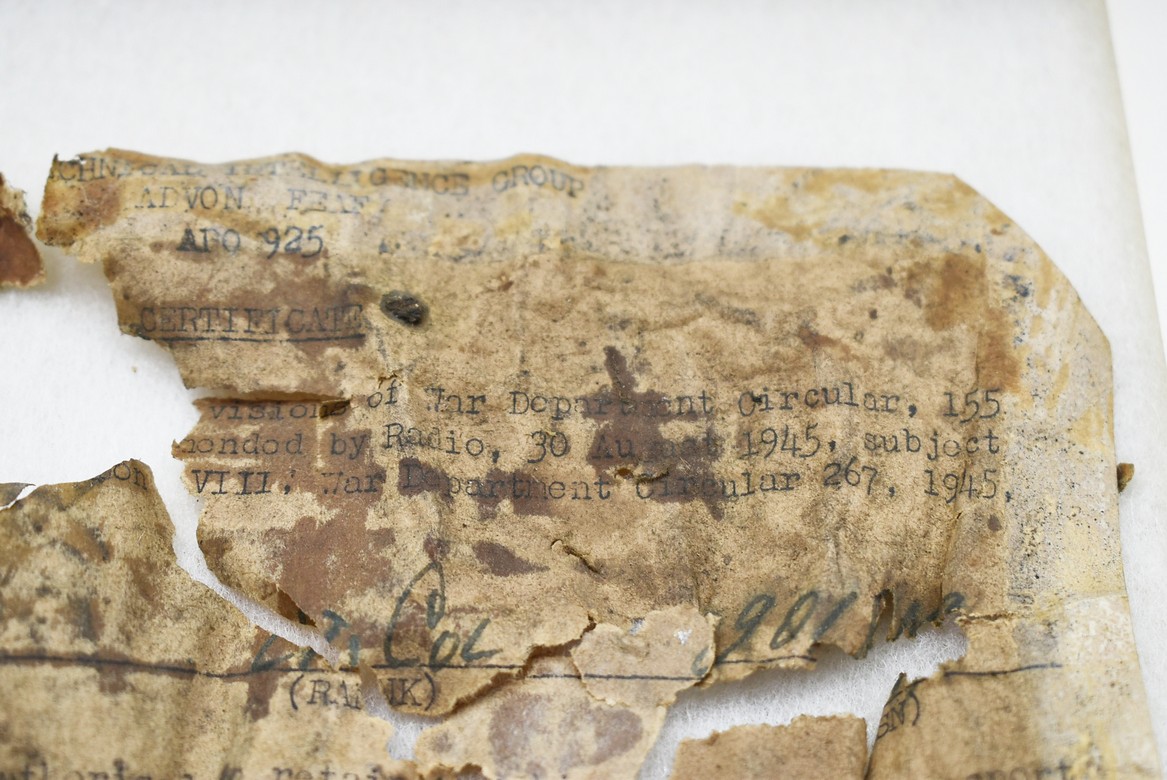 CHNICAL INTELLIGENCE GROUP
ADVON FEAF
APO 925
CERTIFICATE
visions of War Department Circular, 155
mended by Radio, 30 August 1945, subject
on VIII. War Department Circular 267, 1945.
Lt. Col
(RANK)
SN)
retai